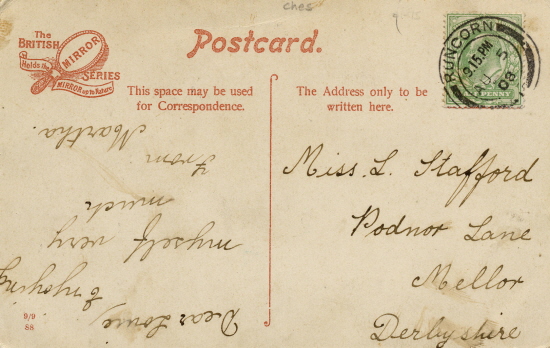 ches
The
BRITISH
MIRROR
Holds the
SERIES
MIRROR up to Nature
Postcard.
This space may be used
for Correspondence.
The Address only to be
written here.
RUNCORN
9.15 PM
5
08
PENNY
Dear Louie,
Enjoying
myself very
much
From
Martha.
Miss. L. Stafford
Podnor Lane
Mellor
Derbyshire
9/9
88